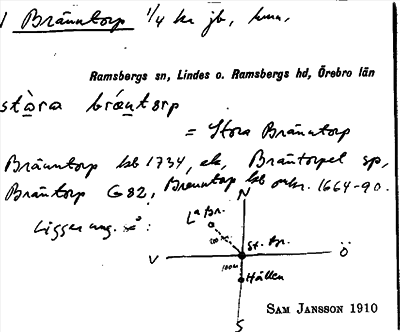 1 Bränntorp 1/4 kr jb,
Ramsbergs sn, Lindes o. Ramsbergs hd, Örebro län
stòra bräntårp
= Stora Bränntorp
Bränntorp kb 1734, ek, Bräntorpet sp,
Bräntorp G82, Brenntorp kb omkr. 1664-90.
N
Lª Br.
Ligger ung. så:
St. Br.
V
Ö
100m
Hällen
SAM JANSSON 1910
S